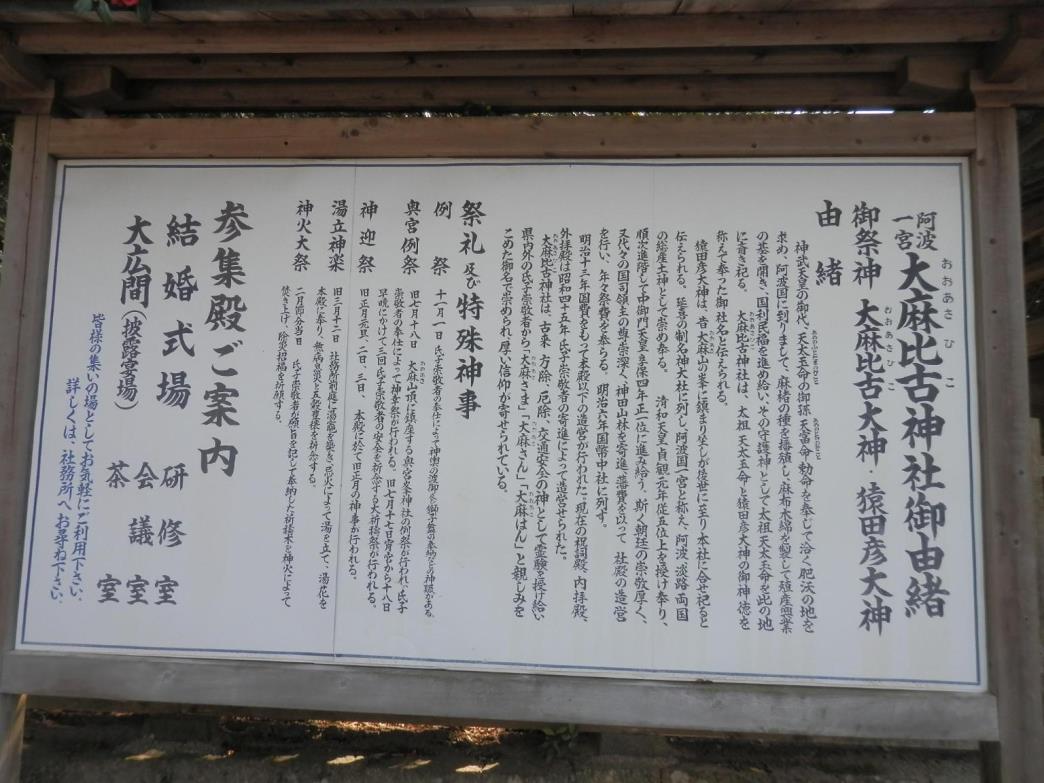 阿波一宮 大麻比古神社御由緒
おおあさひこ
御祭神 大麻比古大神・猿田彦大神
おおあさひこ
由緒
神武天皇の御代、天太玉命の御孫 天富命 勅命を奉じて洽く肥沃の地を
求め、阿波国に到りまして、麻楮の種を播殖し、麻布木綿を製して殖産興業
の基を開き、国利民福を進め給い、その守護神として太祖天太玉命を此の地
に斎き祀る。 大麻比古神社は、太祖 天太玉命と猿田彦大神の御神徳を
称えて奉った御社名と伝えられる。
猿田彦大神は、昔大麻山の峯に鎮まり坐しが後世に至り本社に合せ祀ると
伝えられる。延喜の制名神大社に列し、阿波国一宮と称え、阿波、淡路両国
の総産土神として崇め奉る。 清和天皇貞観元年従五位上を授け奉り、
順次進階して中御門天皇享保四年正一位に進み給う。斯く朝廷の崇敬厚く、
又代々の国司領主の尊崇深く、神田山林を寄進、藩費を以って 社殿の造営
を行い、年々祭費を奉らる。 明治六年国幣中社に列す。
明治十三年国費をもって本殿以下の造営が行われた。現在の祝詞殿、内拝殿、
外拝殿は昭和四十五年氏子崇敬者の寄進によって造営せられた。
大麻比古神社は、古来 方除、厄除、交通安全の神として霊験を授け給い
県内外の氏子崇敬者から「大麻さま」「大麻さん」「大麻はん」と親しみを
こめた御名で崇められ厚い信仰が寄せられている。
祭礼及び特殊神事
例祭 十一月一日 氏子崇敬者の奉仕によって神輿の渡御
奥宮例祭 旧七月十八日 大麻山頂に鎮座する奥宮峯神社の例祭が行われ、氏子
崇敬者の奉仕によって神幸祭が行われる。旧七月十七日宵宮から十八日
早暁にかけて三回氏子崇敬者の安全を祈念する大祈祷祭が行われる。
神迎祭 旧正月元旦、二日、三日、本殿に於て旧正月の神事が行われる。
湯立神楽 旧三月十二日 社務所前庭に湯竈を築き、忌火によって湯を立て、湯花を
本殿に奉り、無病息災と五穀豊穣を祈念する。
神火大祭 二月節分当日 氏子崇敬者が願旨を記して奉納した祈祷木を神火によって
焚き上げ、除災招福を祈願する。
参集殿ご案内
結婚式場 研修室
大広間(披露宴場) 会議室
茶室
皆様の集いの場としてお気軽にご利用下さい。
詳しくは、社務所へお尋ね下さい。